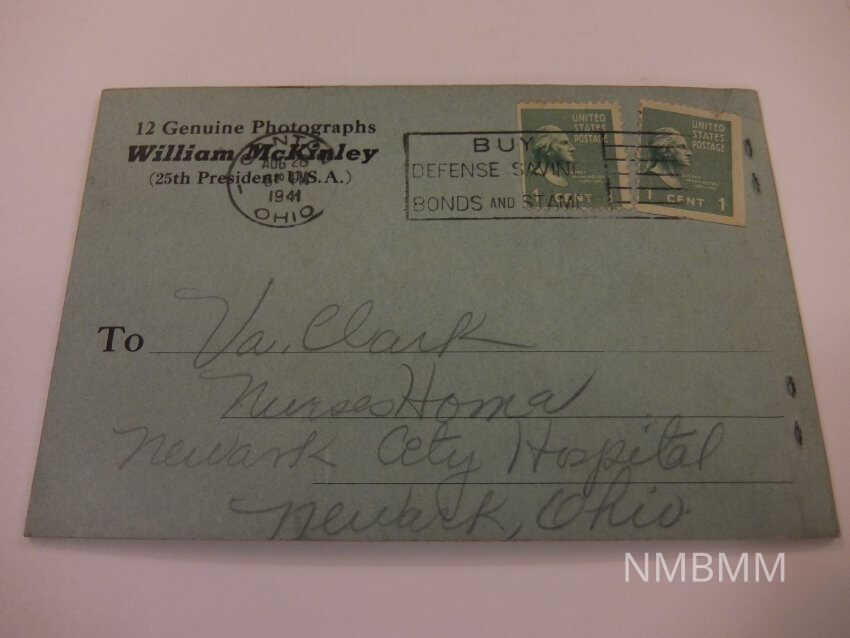 12 Genuine Photographs
William McKinley
(25th President U.S.A.)
AUG 28
1941
OHIO
BUY
DEFENSE SAVING
BONDS AND STAMP
UNITED
STATES
POSTAGE
1 CENT
UNITED
STATES
POSTAGE
1 CENT 1
To Va. Clark
Nurses Home
Newark City Hospital
Newark, Ohio
NMBMM